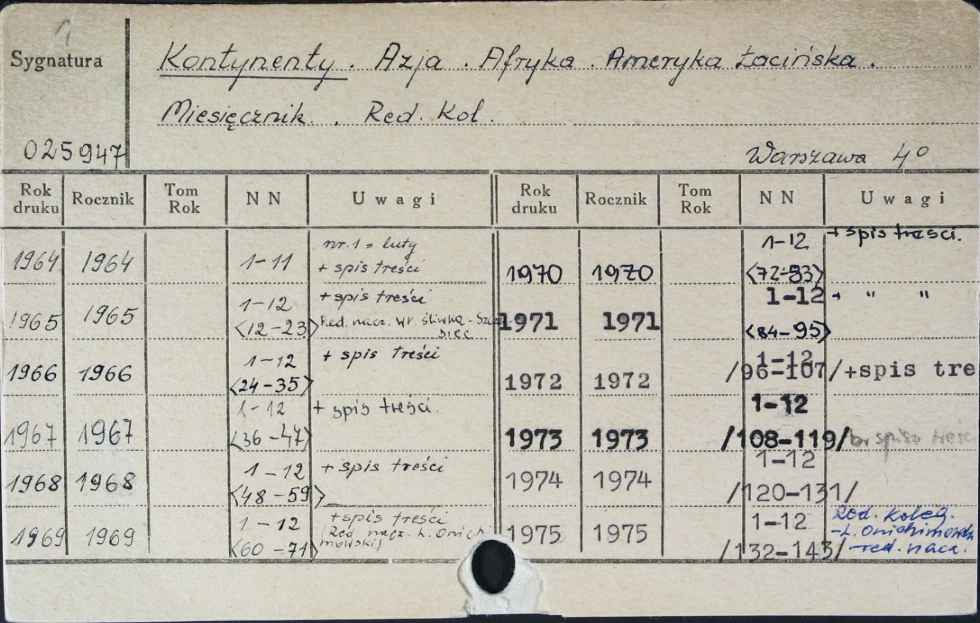 1
Sygnatura
Kontynenty. Azja. Afryka. Ameryka Łacińska.
Miesięcznik. Red. Kol.
025947
Warszawa 4°
Rok druku Rocznik Tom Rok NN Uwagi Rok druku Rocznik Tom Rok NN Uwagi
1964 1964 1-11 nr.1 = luty
+ spis treści
1965 1965 1-12 <12-23> + spis treści
Red. nacz. Wł. Śliwka-
1966 1966 1-12 <24-35> + spis treści
1967 1967 1-12 <36-47> + spis treści.
1968 1968 1-12 <48-59> + spis treści
1969 1969 1-12 <60-71> + spis treści
Red. nacz. L. Onich
mowskij
1970 1970 1-12 <72-83> + spis treści.
1971 1971 1-12 <84-95> + " "
1972 1972 1-12 /96-107/ +spis tre
1973 1973 1-12 /108-119/ br spisu treśc
1974 1974 1-12 /120-131/
1975 1975 1-12 /132-143/ Red. Koleg.
- red. nacz.